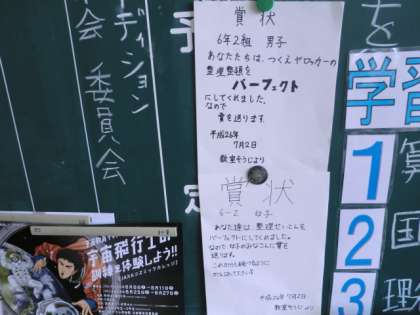 ディション
委員会
会
予
定
を
賞状
6年2組 男子
あなたたちは、つくえやロッカーの
整理整頓を
パーフェクト
にしてくれました。
なので
賞を送ります。
平成26年
7月2日
教室そうじより
賞状
6-2 女子
あなた達は、整理せいとんを
パーフェクトにしてくれました。
なので、女子のみなさんに賞を
送ります。
平成26年 7月2日
教室そうじより
学習
1 算
2 国
3 理
宇宙飛行士の
訓練を体験しよう!!